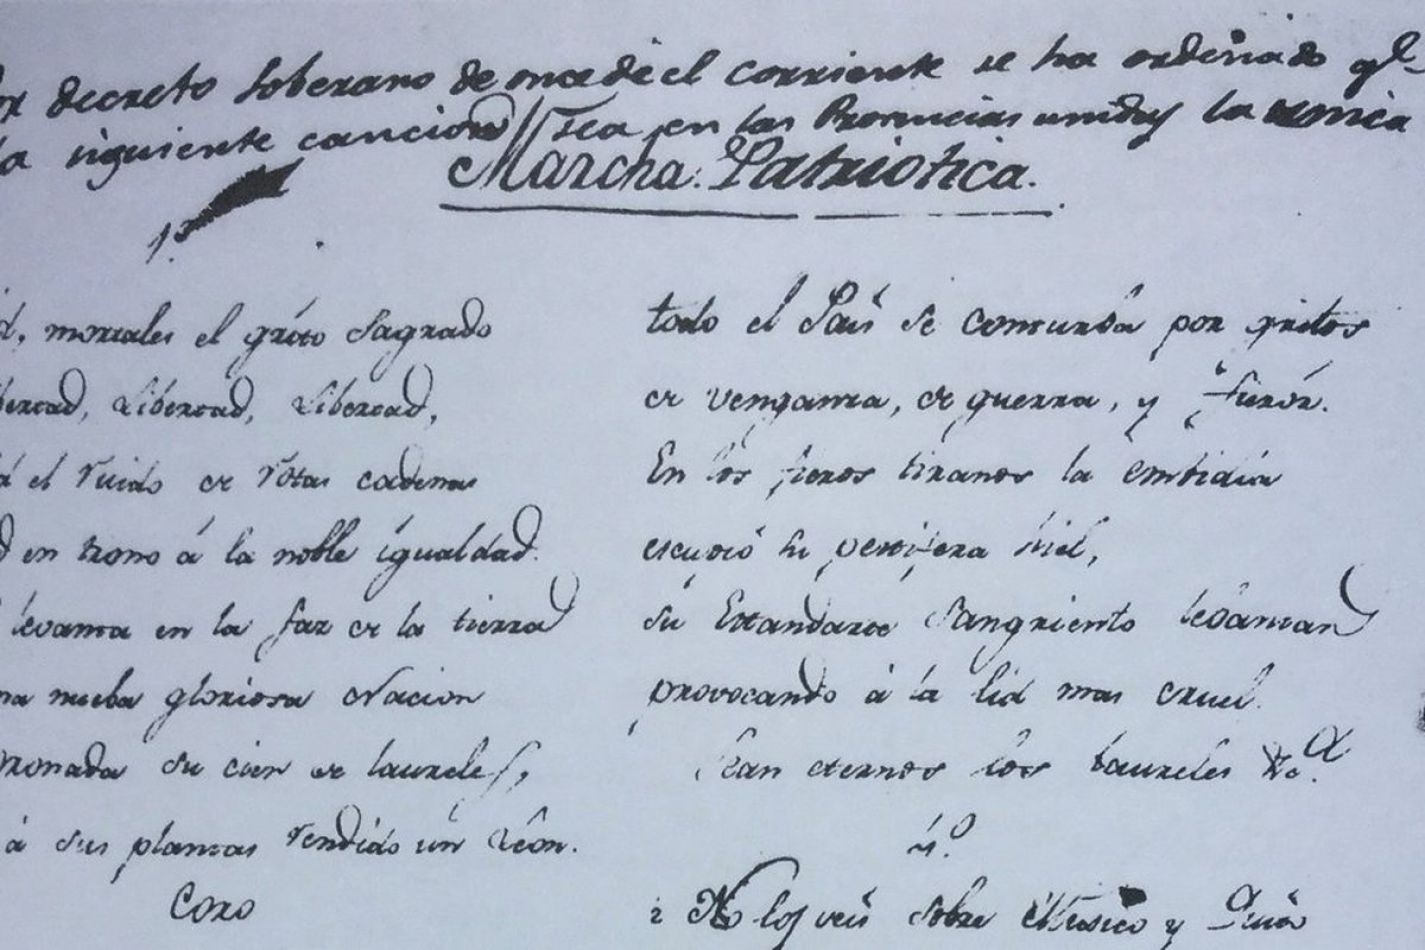 or decreto soberano de once de el corriente se ha ordenado qᵉ
la siguiente cancion sea en las Provincias unidas la unica
Marcha Patriotica.
1.º
d, mortales el grito Sagrado
bertad, Libertad, Libertad,
d el ruido de rotas cadenas
d en trono á la noble igualdad.
levanta en la faz de la tierra
na nueba gloriosa Nacion
oronada su cien de laureles,
á sus plantas rendido un Léon.
Coro
todo el País se conturba por gritos
de venganza, de guerra, y furór.
En los fieros tiranos la embidia
escupió su pestifera hiel,
su Estandarte Sangriento lebantan
provocando á la lid mas cruel.
Sean eternos los laureles &c.ª
4.º
¿ No los veis sobre Mexico y Quito